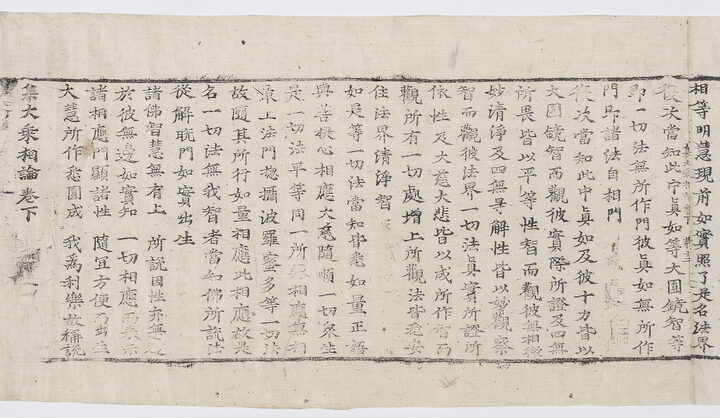 相等明慧現前如實照了是名法界
復次當知此中真如等大圓鏡智等
即一切法無所作門彼真如無所作
門即諸法自相門
復次當知此中真如及彼十力皆以
大圓鏡智而觀彼實際所證及四無
所畏皆以平等性智而觀彼無相微
妙清淨及四無㝵解性皆以妙觀察
智而觀彼法界一切法真實所證所
依性及大慈大悲皆以成所作智而
觀所有一切處增上所觀法皆悉安
住法界清淨智
如是等一切法當知皆悉如量正語
與善根心相應大意隨順一切眾生
是一切法平等同一所緣相應無相
最上法門總攝波羅蜜多等一切法
故隨其所行如量相應此相應故是
名一切法無我智者當如佛所說法
從解脫門如實出生
諸佛智慧無有上 所說因性亦無
於彼無邊如實知 一切相應而表示
諸相應門顯諸性 隨宜方便而出生
大慧所作悉圓成 我為利樂故稱說
集大乘相論卷下